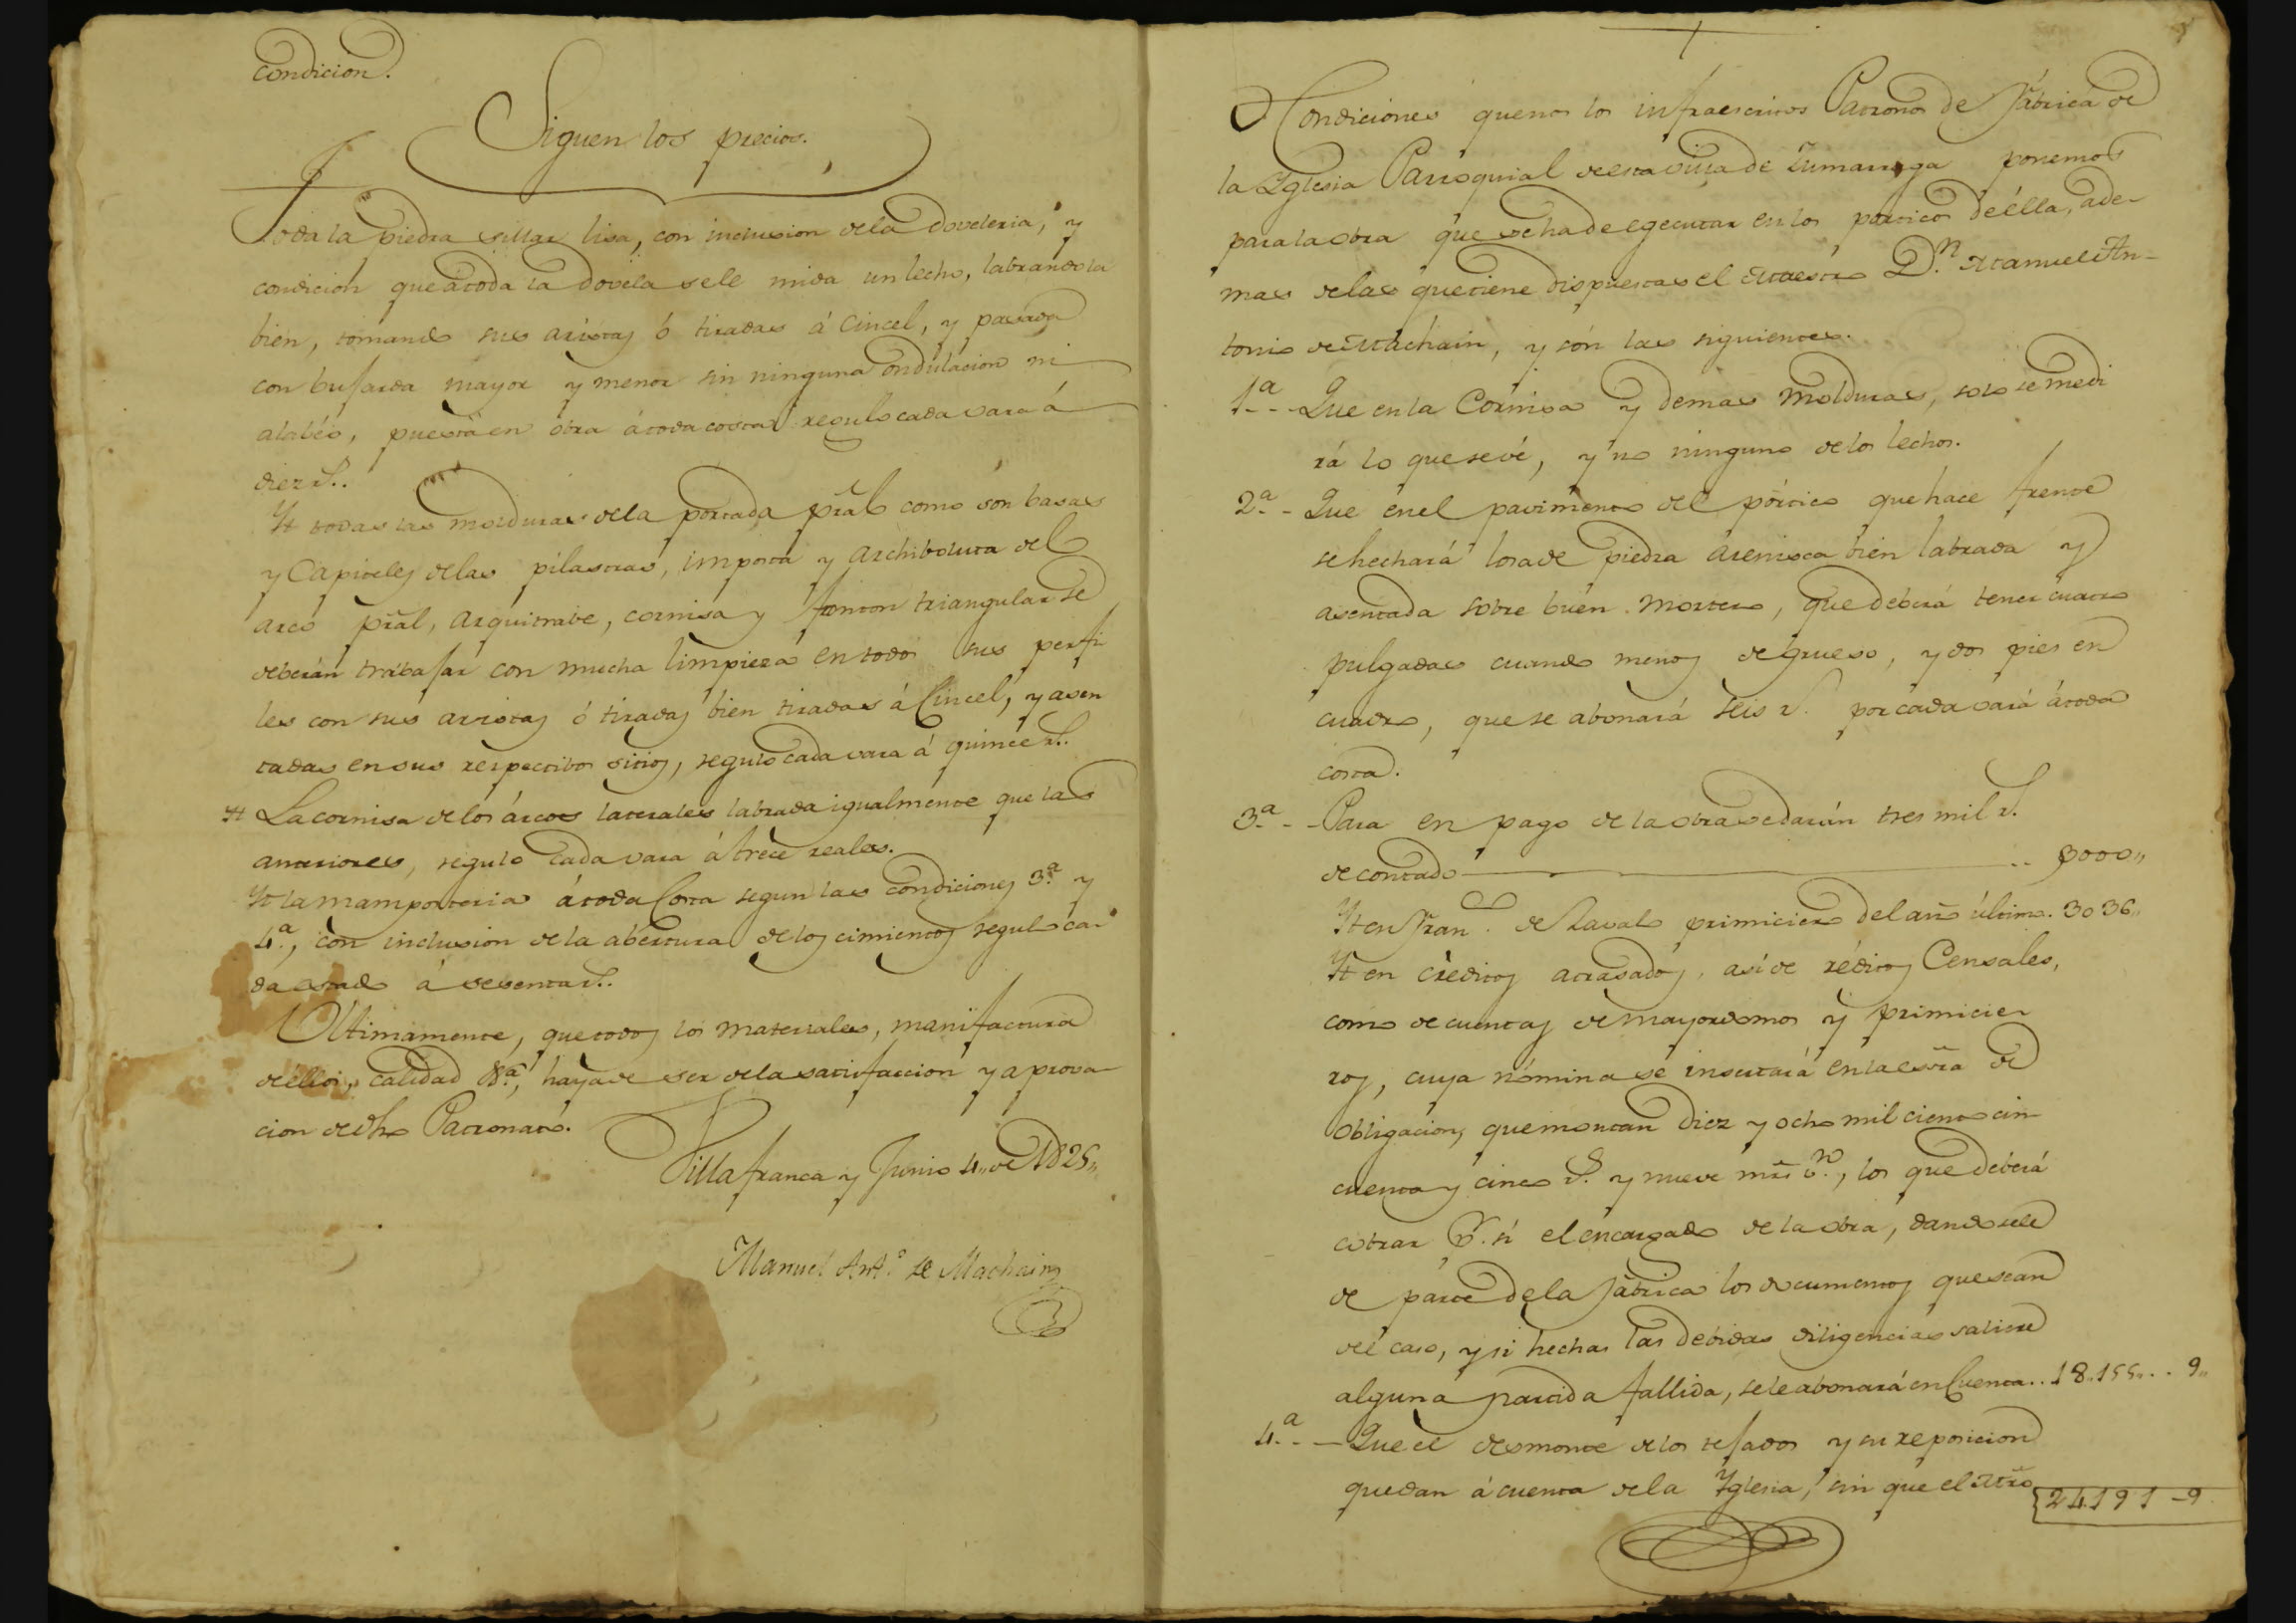 condicion.
Siguen los precios.
Toda la piedra sillar lisa, con inclusion de la Doveleria, y
condicion que á toda la Dovela se le mida un lecho, labrandola
bien, tomando sus aristas ó tiradas á Cincel, y pasada
con bufarda mayor y menor sin ninguna ondulacion ni
alabéo, puesta en obra á toda costa regulo cada vara á
diez rs.
Yt todas las molduras de la portada pral como són basas
y Capiteles de las pilastras, imposta y archiboluta del
arco pral, arquitrabe, cornisa y fronton triangular se
deberán trabajar con mucha limpieza en todos sus perfi
les con sus aristas ó tiradas bien tiradas á Cincel, y asen
tadas en sus respectibos sitios, regulo cada vara á quince rs.
Yt La cornisa de los árcos laterales labrada igualmente que las
anteriores, regulo cada vara á trece reales.
Yt la mamposteria á toda Costa segun las condiciones 3.ª y
4.ª, con inclusion de la abertura de los cimientos regulo ca
da estado á sesenta rs.
Ultimamente, que todos los materiales, manifactura
de ellos, calidad &.ª, haya de ser de la satisfaccion y aprova
cion de dho Patronato.
Villafranca y Junio 4,, de 1825,,
Manuel Ant.º de Machain
Condiciones que nos los infraescritos Patronos de Fábrica de
la Yglesia Parroquial de esta villa de Zumarraga ponemos
para la obra que se ha de egecutar en los porticos de élla, ade
mas de las que tiene dispuestas el Maestro D.n Manuel An-
tonio de Machain, y són las siguientes.
1.ª - - Que en la Cornisa y demas Molduras, solo se medi
rá lo que se vé, y no ninguno de los lechos.
2.ª - Que en el pavimento del pórtico que hace frente
se hechará losa de piedra árenisca bien labrada y
asentada sobre buen mortero, que deberá tener cuatro
pulgadas cuando menos de grueso, y dos pies en
cuadro, que se abonará seis rs. por cada vara á toda
costa.
3.ª - - Para en pago de la obra se darán tres mil rs.
de contado .. 3000,,
Yt en Fran.co de Laval primiciero del año último. 3036,,
Yt en créditos atrasados, asi de réditos Censales,
como de cuentas de mayordomos y primicie
ros, cuya nómina se insertará en la esra de
Obligacion, que montan diez y ocho mil ciento cin
cuenta y cinco rs. y nueve mrs v.n, los que deberá
cobrar p.r si el encargado de la obra, dandosele
de parte de la Fábrica los documentos que sean
del caso, y si hechas las debidas diligencias saliere
alguna partida fallida, se le abonará en Cuenta.. 18.155.. . 9,,
4.ª - - Que el desmonte de los tejados y su reposicion
quedan á cuenta de la Yglesia, sin que el Mro
24191 - 9